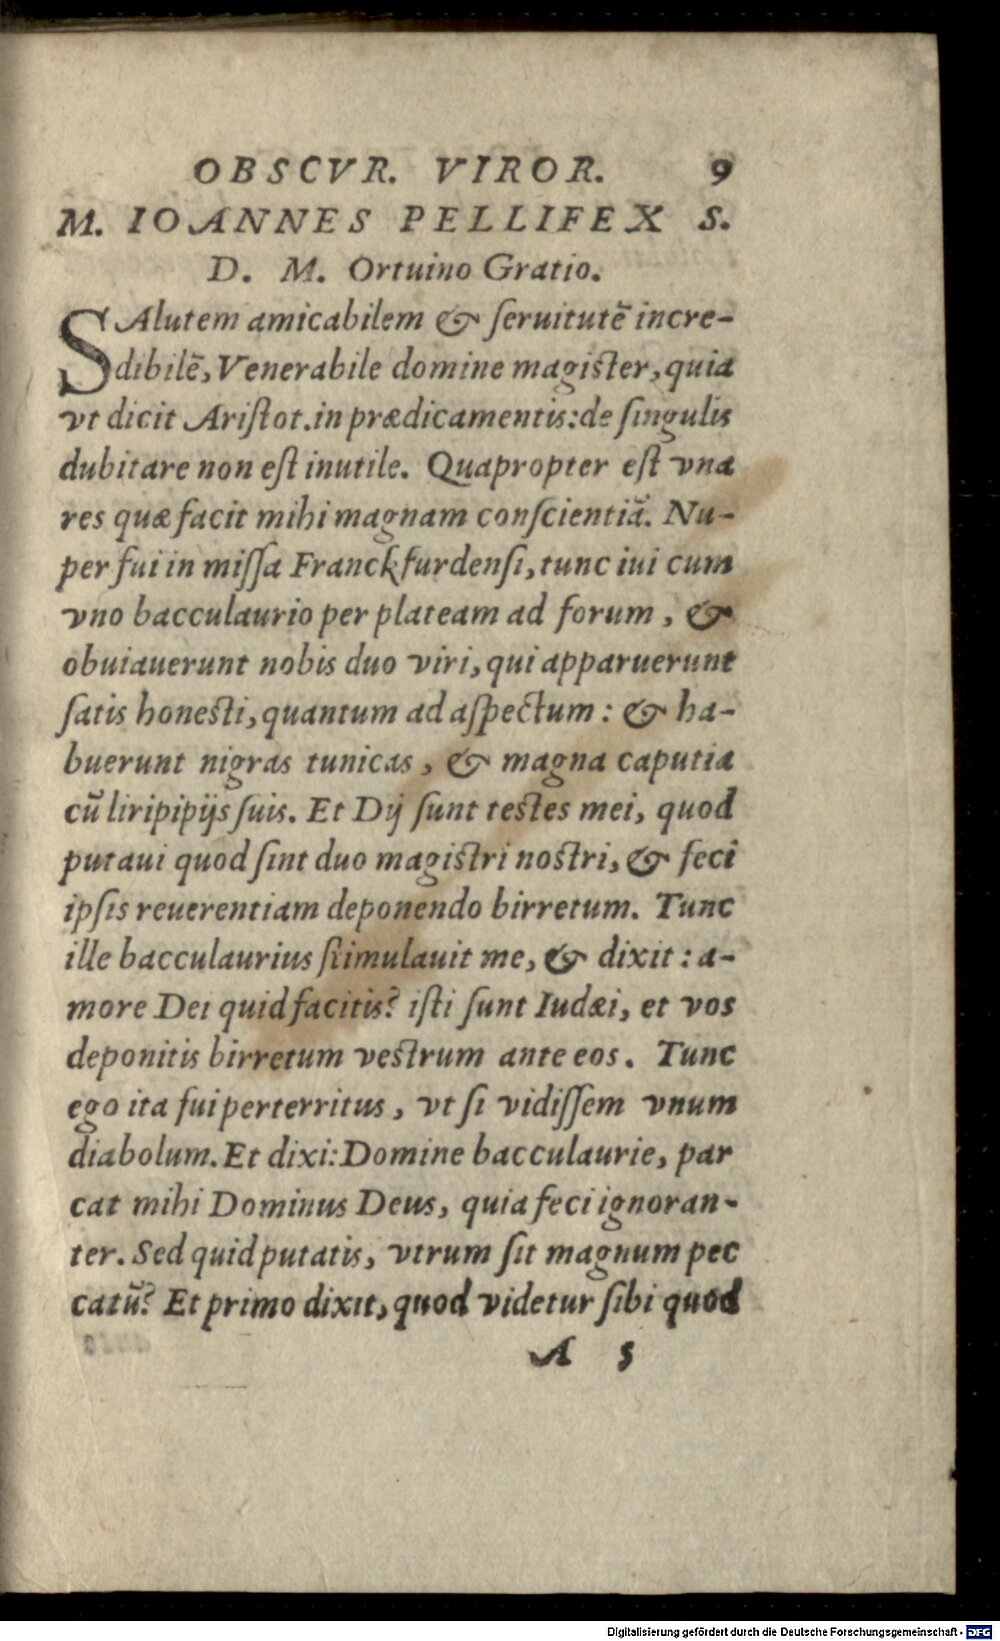 OBSCVR. VIROR. 9
M. IOANNES PELLIFEX S.
D. M. Ortuino Gratio.
SAlutem amicabilem & ſeruitutē incre-
dibilē, Venerabile domine magiſter, quia
vt dicit Ariſtot. in prædicamentis: de ſingulis
dubitare non eſt inutile. Quapropter eſt vna
res quæ facit mihi magnam conſcientiā. Nu-
per fui in miſſa Franckfurdenſi, tunc iui cum
vno bacculaurio per plateam ad forum, &
obuiauerunt nobis duo viri, qui apparuerunt
ſatis honeſti, quantum ad aſpectum: & ha-
buerunt nigras tunicas, & magna caputia
cū liripipijs ſuis. Et Dij ſunt teſtes mei, quod
putaui quod ſint duo magiſtri noſtri, & feci
ipſis reuerentiam deponendo birretum. Tunc
ille bacculaurius ſtimulauit me, & dixit: a-
more Dei quid facitis? iſti ſunt Iudæi, et vos
deponitis birretum veſtrum ante eos. Tunc
ego ita fui perterritus, vt ſi vidiſſem vnum
diabolum. Et dixi: Domine bacculaurie, par
cat mihi Dominus Deus, quia feci ignoran-
ter. Sed quid putatis, vtrum ſit magnum pec
catū? Et primo dixit, quod videtur ſibi quod
A 5
Digitalisierung gefördert durch die Deutsche Forschungsgemeinschaft - DFG